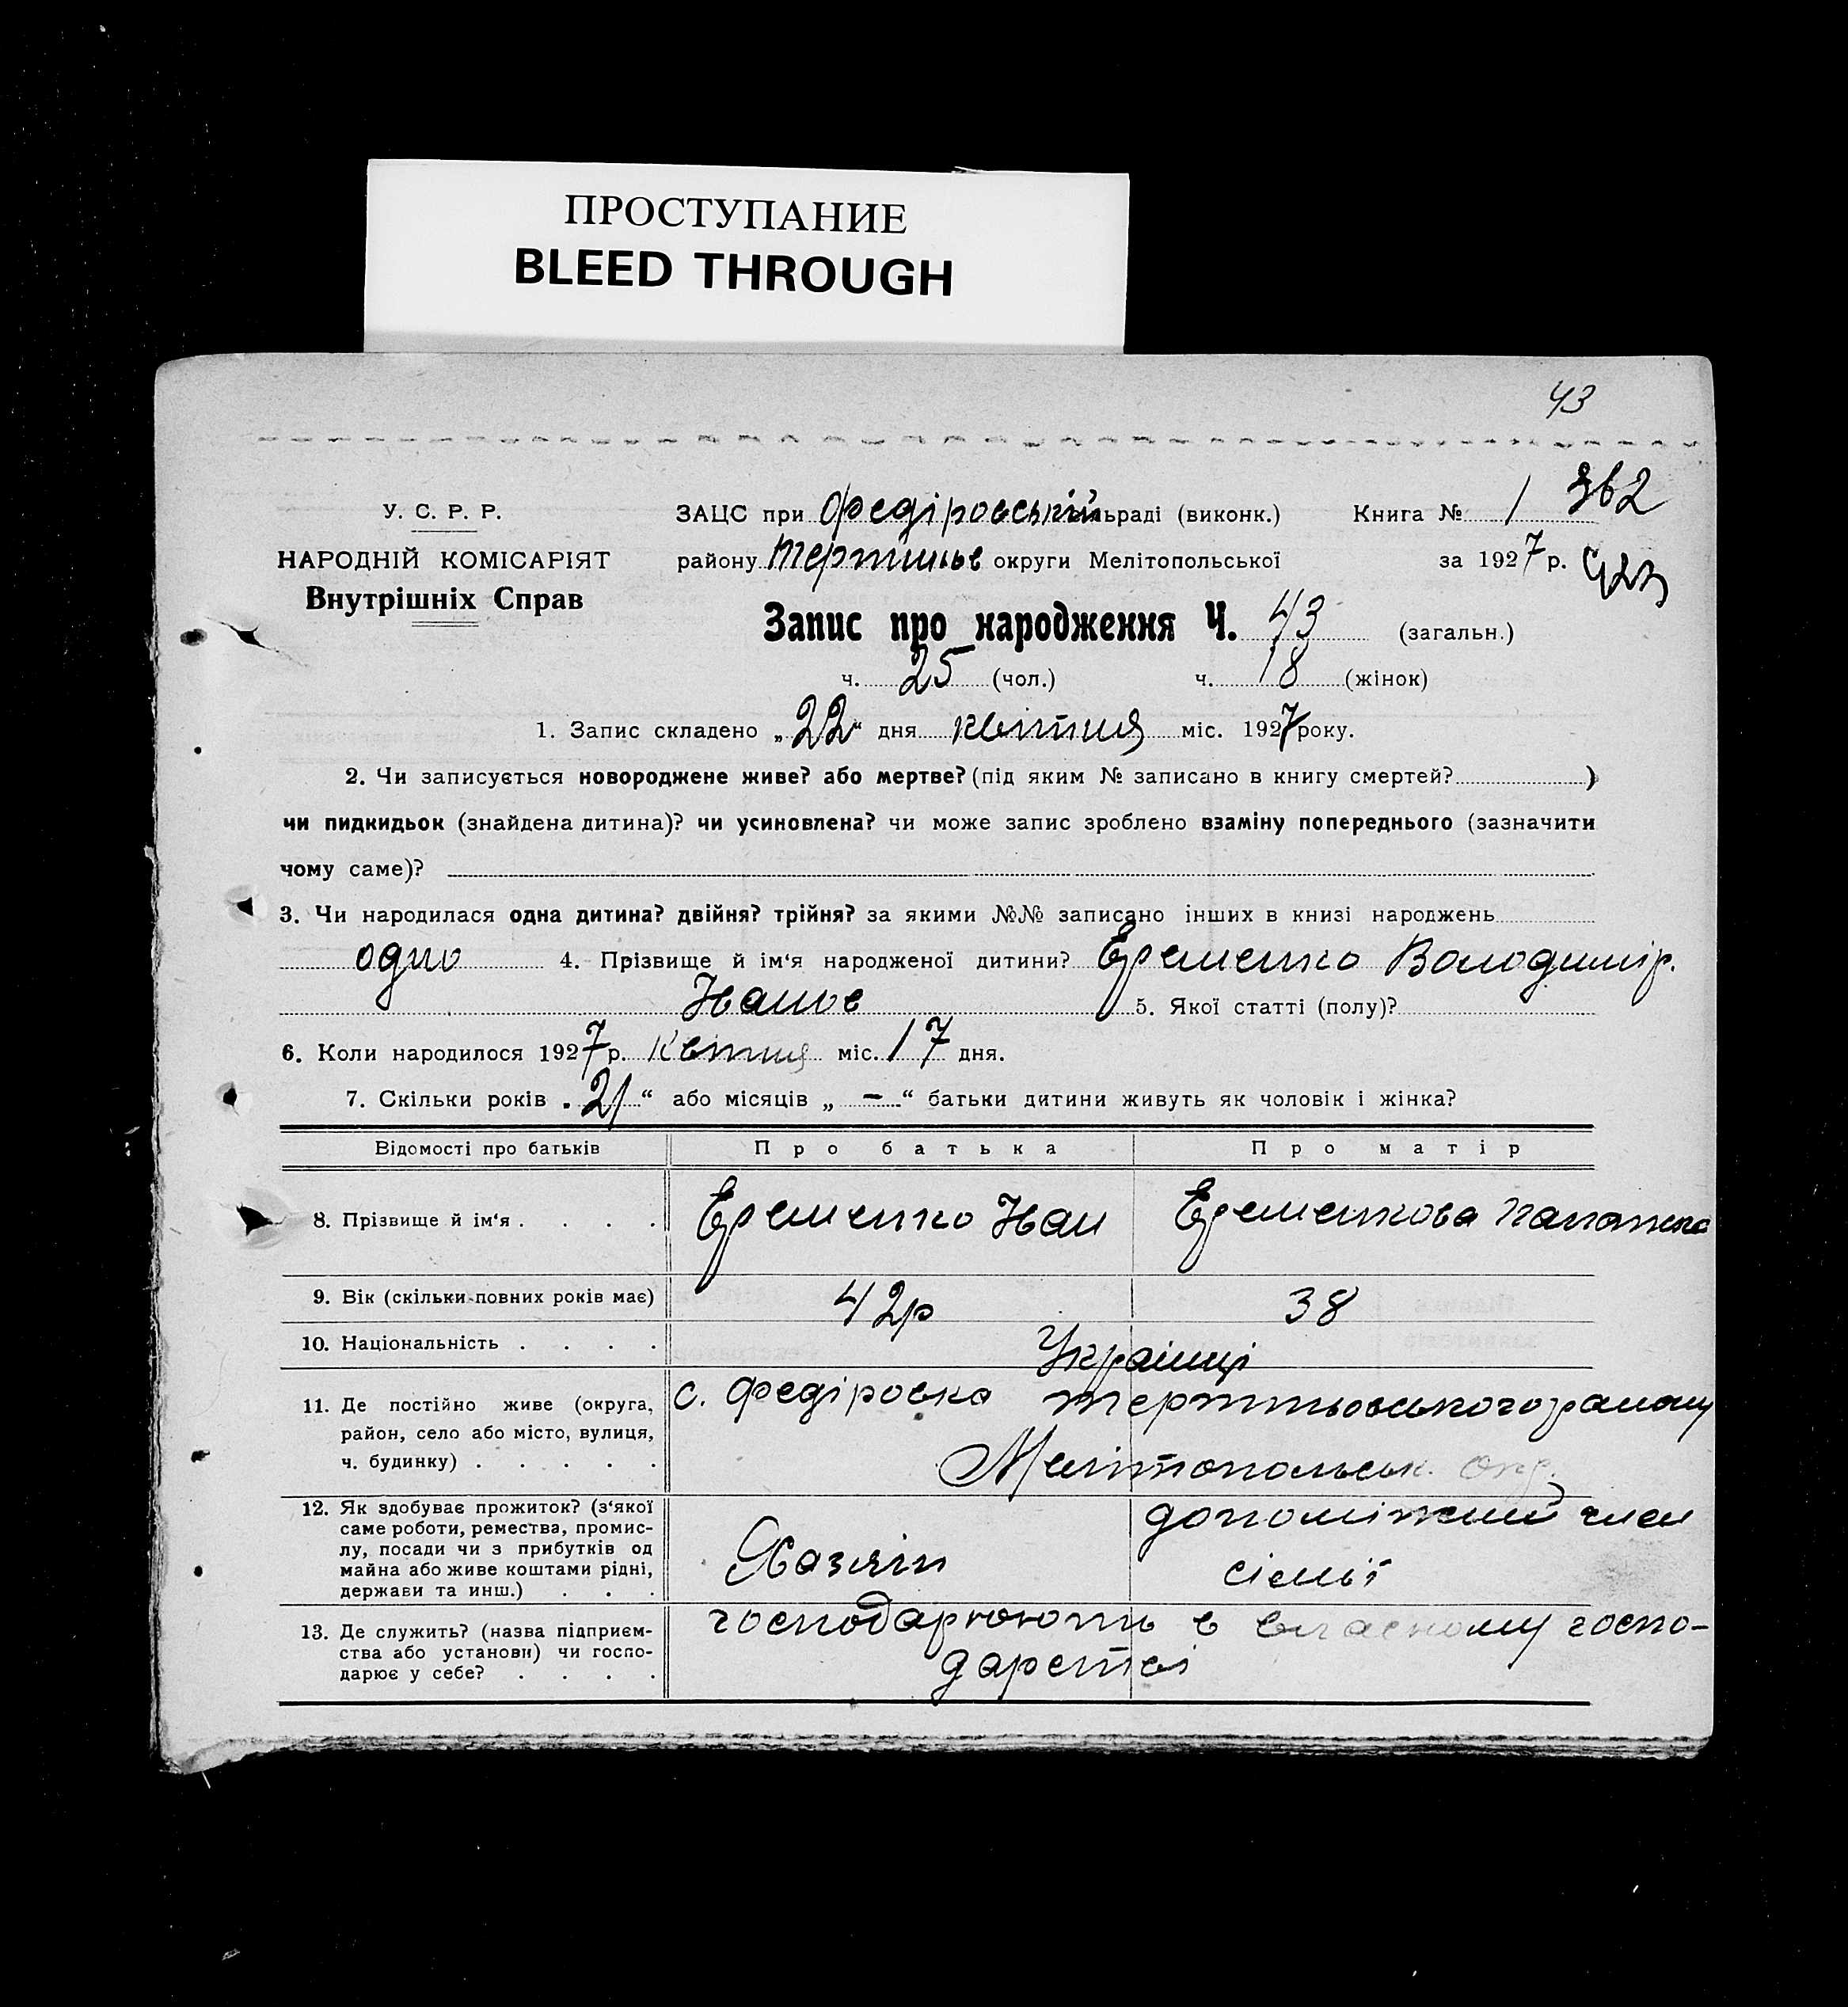 ПРОСТУПАНИЕ
BLEED THROUGH
43
У. С. Р. Р.
НАРОДНІЙ КОМІСАРІЯТ
Внутрішніх Справ
ЗАЦС при Федіровській сільраді (виконк.) Книга № 1 362
району округи Мелітопольської за 1927 р.
Запис про народження Ч. 43 (загальн.)
ч. 25 (чол.) ч. 18 (жінок)
1. Запис складено „22“ дня квітня міс. 1927 року.
2. Чи записується новороджене живе? або мертве? (під яким № записано в книгу смертей? )
чи пидкидьок (знайдена дитина)? чи усиновлена? чи може запис зроблено взаміну попереднього (зазначити
чому саме)?
3. Чи народилася одна дитина? двійня? трійня? за якими №№ записано інших в книзі народжень
одно 4. Прізвище й ім‘я народженої дитини? Єременко Володимір.
Іванов 5. Якої статті (полу)?
6. Коли народилося 1927 р. квітня міс. 17 дня.
7. Скільки років „21“ або місяців „ — “ батьки дитини живуть як чоловік і жінка?
Відомості про батьків Про батька Про матір
8. Прізвище й ім‘я . . . . Єременко Іван Єременкова
9. Вік (скільки повних років має) 42р 38
10. Національність . . . . Українці
11. Де постійно живе (округа, район, село або місто, вулиця, ч. будинку) . . . . . с. Федіровка району
Мелітопольськ. окр.
12. Як здобуває прожиток? (з‘якої саме роботи, ремества, промислу, посади чи з прибутків од майна або живе коштами рідні, держави та инш.) . . . Хазяїн допоміжний член
сімьї
13. Де служить? (назва підприємства або установи) чи господарює у себе? . . . . господарюють в власному госпо-
дарстві